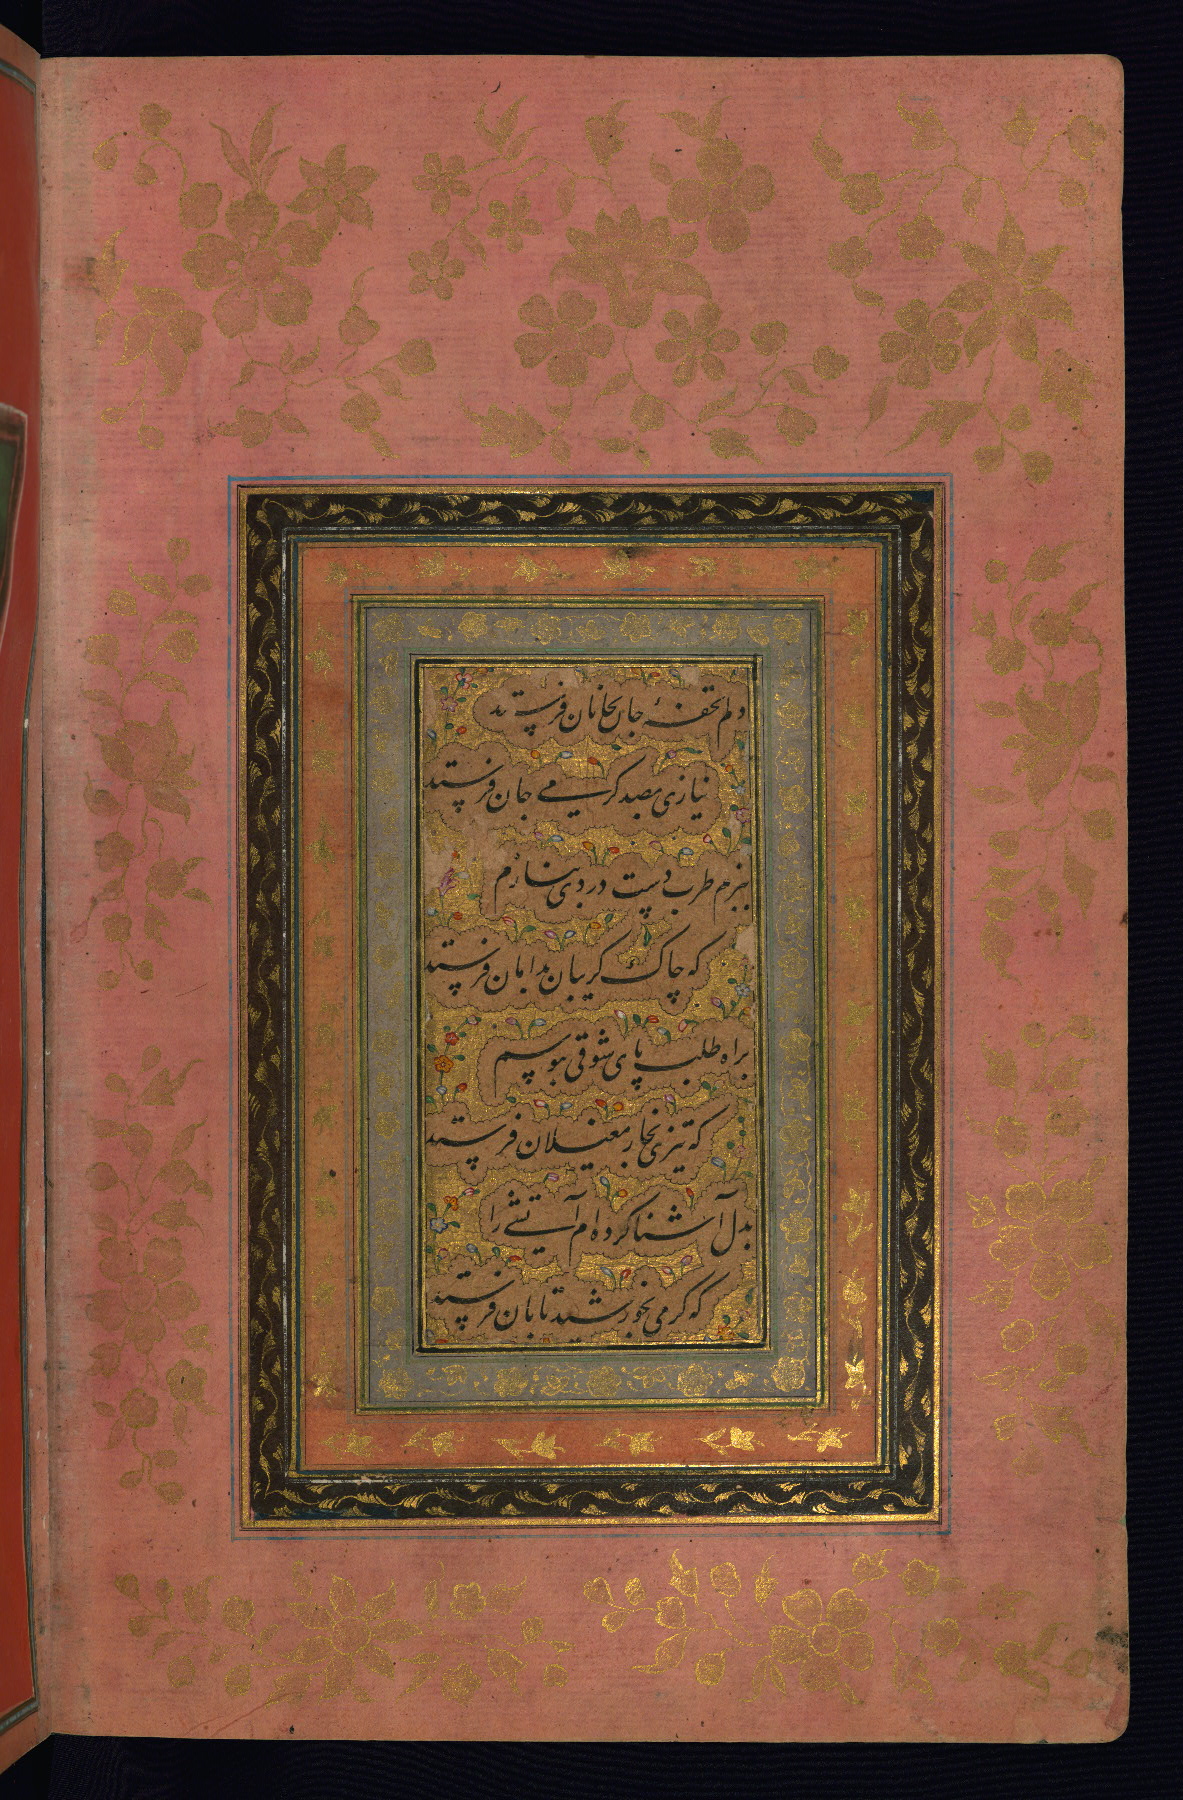 دلم تحفهٔ جان بجانان فرستد
نیازی بصد کریمی جان فرستد
ببزم طرب دست دردی بنازم
که چاک کریبان بدامان فرستد
براه طلب پای شوقی ببوسم
که تیزی بخار مغیلان فرستد
بدل آشنا کرده‌ام آتشی را
که کرمی بخورشید تابان فرستد